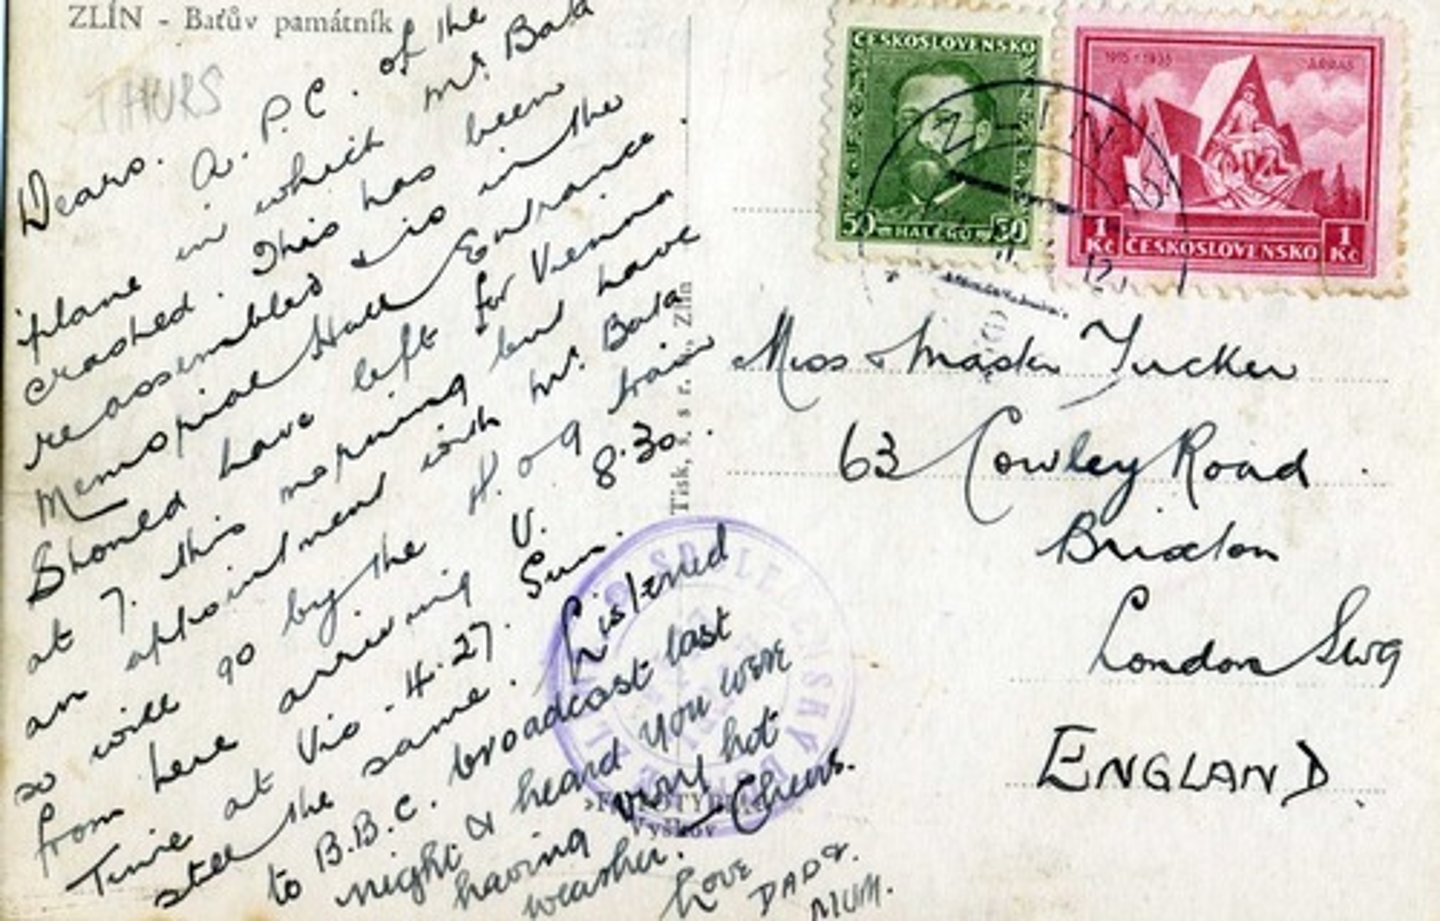 ZLÍN - Baťův památník
THURS
Dears. A. P.C. of the
'plane in which Mr. Bata
crashed. This has been
reassembled & is in the
Memorial Hall Entrance.
Should have left for Vienna
at 7. this morning but have
an appointment with Mr. Bata
so will go by the train
from here arriving V. 8.30.
Time at Vic. 4.27. Sun.
still the same. Listened
to B.B.C. broadcast last
night & heard you were
having very hot
weather. Cheers.
Love DAD &
MUM.
Tisk, Zlín
ČESKOSLOVENSKO
50 HALÉŘŮ 50
1915 • 1935 ARRAS
1 Kč ČESKOSLOVENSKO 1 Kč
ZLÍN
12
Miss & Master Tucker
63 Cowley Road
Brixton
London SW9
ENGLAND.
Vyškov